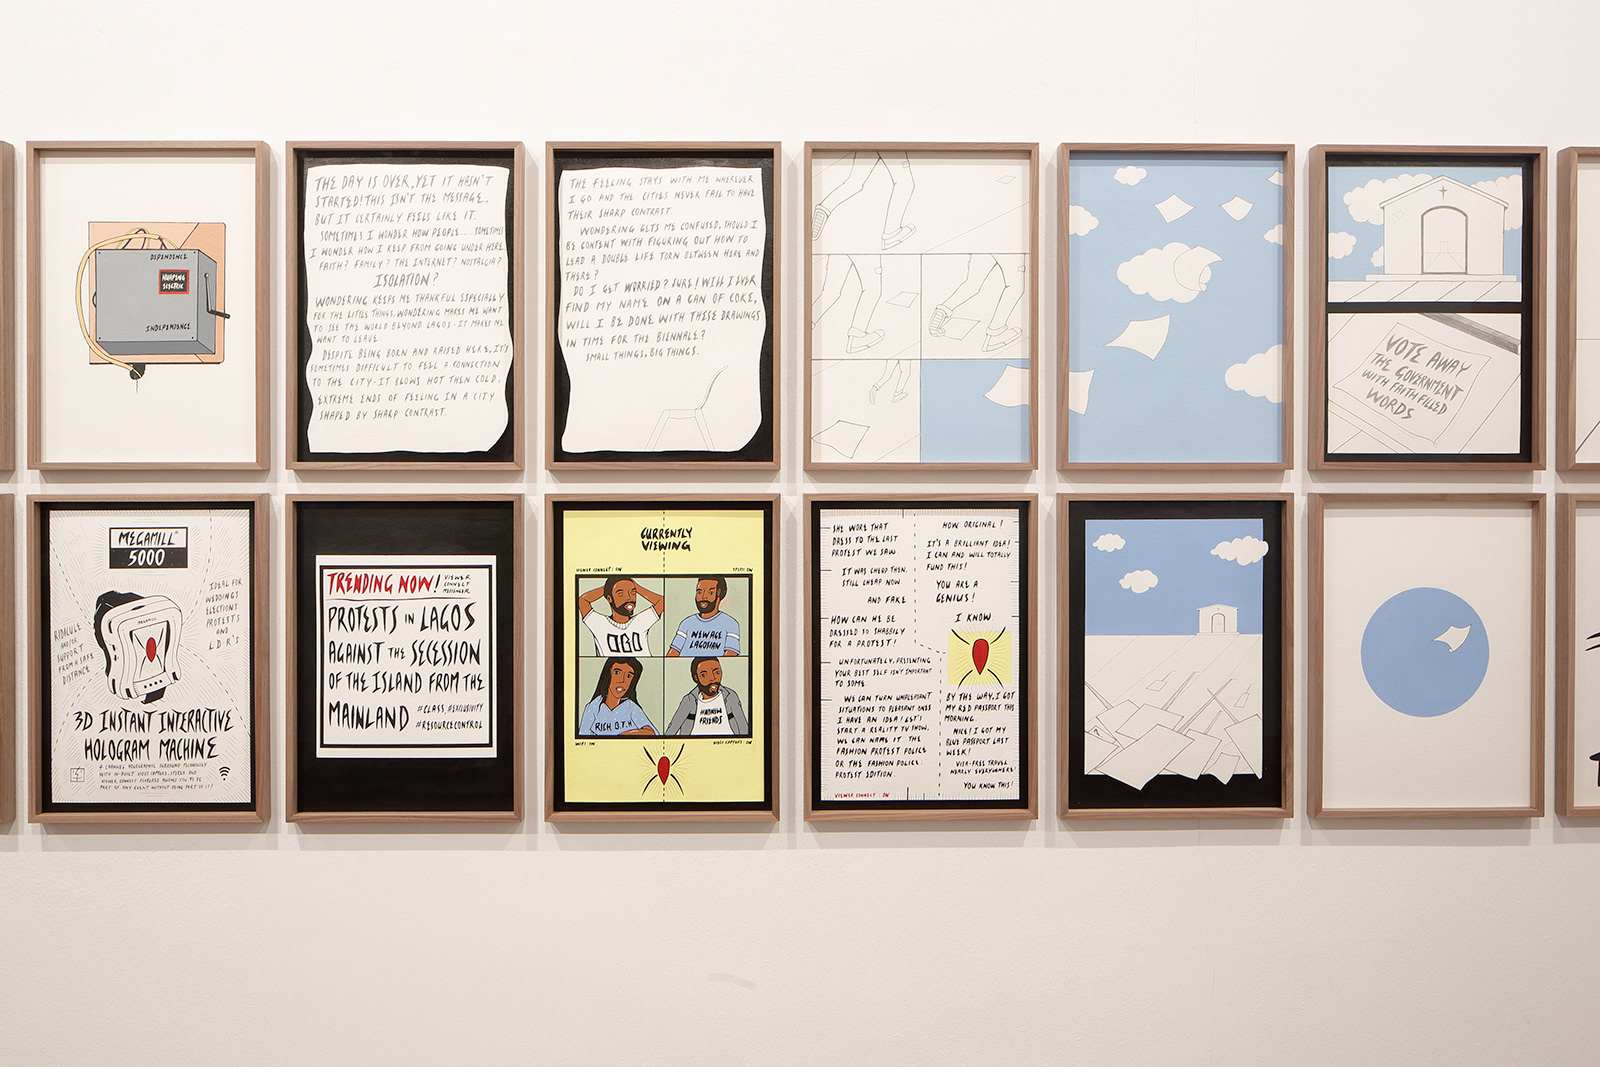 DEPENDENCE
HUAPING
ELECTRIC
INDEPENDENCE
THE DAY IS OVER, YET IT HASN'T
STARTED! THIS ISN'T THE MESSAGE,
BUT IT CERTAINLY FEELS LIKE IT.
SOMETIMES I WONDER HOW PEOPLE.....SOMETIMES
I WONDER HOW I KEEP FROM GOING UNDER HERE.
FAITH? FAMILY? THE INTERNET? NOSTALGIA?
ISOLATION?
WONDERING KEEPS ME THANKFUL ESPECIALLY
FOR THE LITTLE THINGS. WONDERING MAKES ME WANT
TO SEE THE WORLD BEYOND LAGOS-IT MAKES ME
WANT TO LEAVE.
DESPITE BEING BORN AND RAISED HERE, IT'S
SOMETIMES DIFFICULT TO FEEL A CONNECTION
TO THE CITY-IT BLOWS HOT THEN COLD.
EXTREME ENDS OF FEELING IN A CITY
SHAPED BY SHARP CONTRAST.
THE FEELING STAYS WITH ME WHEREVER
I GO AND THE CITIES NEVER FAIL TO HAVE
THEIR SHARP CONTRAST.
WONDERING GETS ME CONFUSED, SHOULD I
BE CONTENT WITH FIGURING OUT HOW TO
LEAD A DOUBLE LIFE TORN BETWEEN HERE AND
THERE?
DO I GET WORRIED? SURE! WILL I EVER
FIND MY NAME ON A CAN OF COKE,
WILL I BE DONE WITH THESE DRAWINGS
IN TIME FOR THE BIENNALE?
SMALL THINGS, BIG THINGS.
VOTE AWAY
THE GOVERNMENT
WITH FAITH FILLED
WORDS
MEGAMILL®
5000
IDEAL FOR
WEDDINGS
ELECTIONS
PROTESTS
AND
L D R'S
RIDICULE
AND/OR
SUPPORT
FROM A SAFE
DISTANCE
MEGAMILL
3D INSTANT INTERACTIVE
HOLOGRAM MACHINE
4 CHANNEL HOLOGRAPHIC SURROUND TECHNOLOGY
WITH IN-BUILT VIDEO CAPTURE, STEREO AND
VIEWER CONNECT FEATURES ALLOWS YOU TO BE
PART OF ANY EVENT WITHOUT BEING PART OF IT!
TRENDING NOW!
VIEWER
CONNECT
MESSENGER
PROTESTS IN LAGOS
AGAINST THE SECESSION
OF THE ISLAND FROM THE
MAINLAND
#CLASS, #EXCLUSIVITY
#RESOURCECONTROL
CURRENTLY
VIEWING
VIEWER CONNECT : ON
NEW AGE
LAGOSIAN
RICH B.T.H
#NONEW
FRIENDS
WIFI : ON
VIDEO CAPTURE : ON
SHE WORE THAT
DRESS TO THE LAST
PROTEST WE SAW
IT WAS CHEAP THEN,
STILL CHEAP NOW
AND FAKE
HOW CAN HE BE
DRESSED SO SHABBILY
FOR A PROTEST!
UNFORTUNATELY, PRESENTING
YOUR BEST SELF ISN'T IMPORTANT
TO SOME
WE CAN TURN UNPLEASANT
SITUATIONS TO PLEASANT ONES
I HAVE AN IDEA! LET'S
START A REALITY TV SHOW,
WE CAN NAME IT THE
FASHION PROTEST POLICE
OR THE FASHION POLICE:
PROTEST EDITION.
VIEWER CONNECT : ON
HOW ORIGINAL!
IT'S A BRILLIANT IDEA!
I CAN AND WILL TOTALLY
FUND THIS!
YOU ARE A
GENIUS!
I KNOW
BY THE WAY, I GOT
MY RED PASSPORT THIS
MORNING.
NICE! I GOT MY
BLUE PASSPORT LAST
WEEK!
VISA-FREE TRAVEL
NEARLY EVERYWHERE!
YOU KNOW THIS!